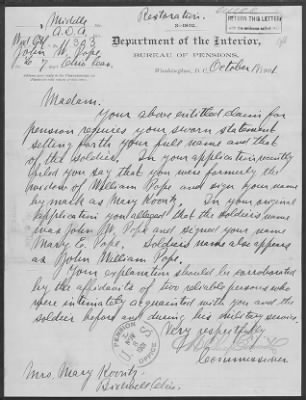 Middle
Restoration.
RETURN THIS LETTER
A.D.A.
3-2052.
John W. Pope
Department of the Interior,
BUREAU OF PENSIONS,
Washington, D.C., October 19, 1901
Madam:
Your above entitled claim for
pension requires your sworn statement
setting forth your full name and that
of the soldier. In your application recently
filed you say that you were formerly the
widow of William Pope and sign your name
by mark as Mary Koontz. In your original
application you alleged that the soldier's name
was John W. Pope and signed your name
Mary E. Pope. Soldier's name also appears
as John William Pope.
Your explanation should be corroborated
by the affidavits of two reliable persons who
were intimately acquainted with you and the
soldier before and during his military service.
Very respectfully
Commissioner
PENSION
OFFICE
U. S.
Mrs. Mary Koontz